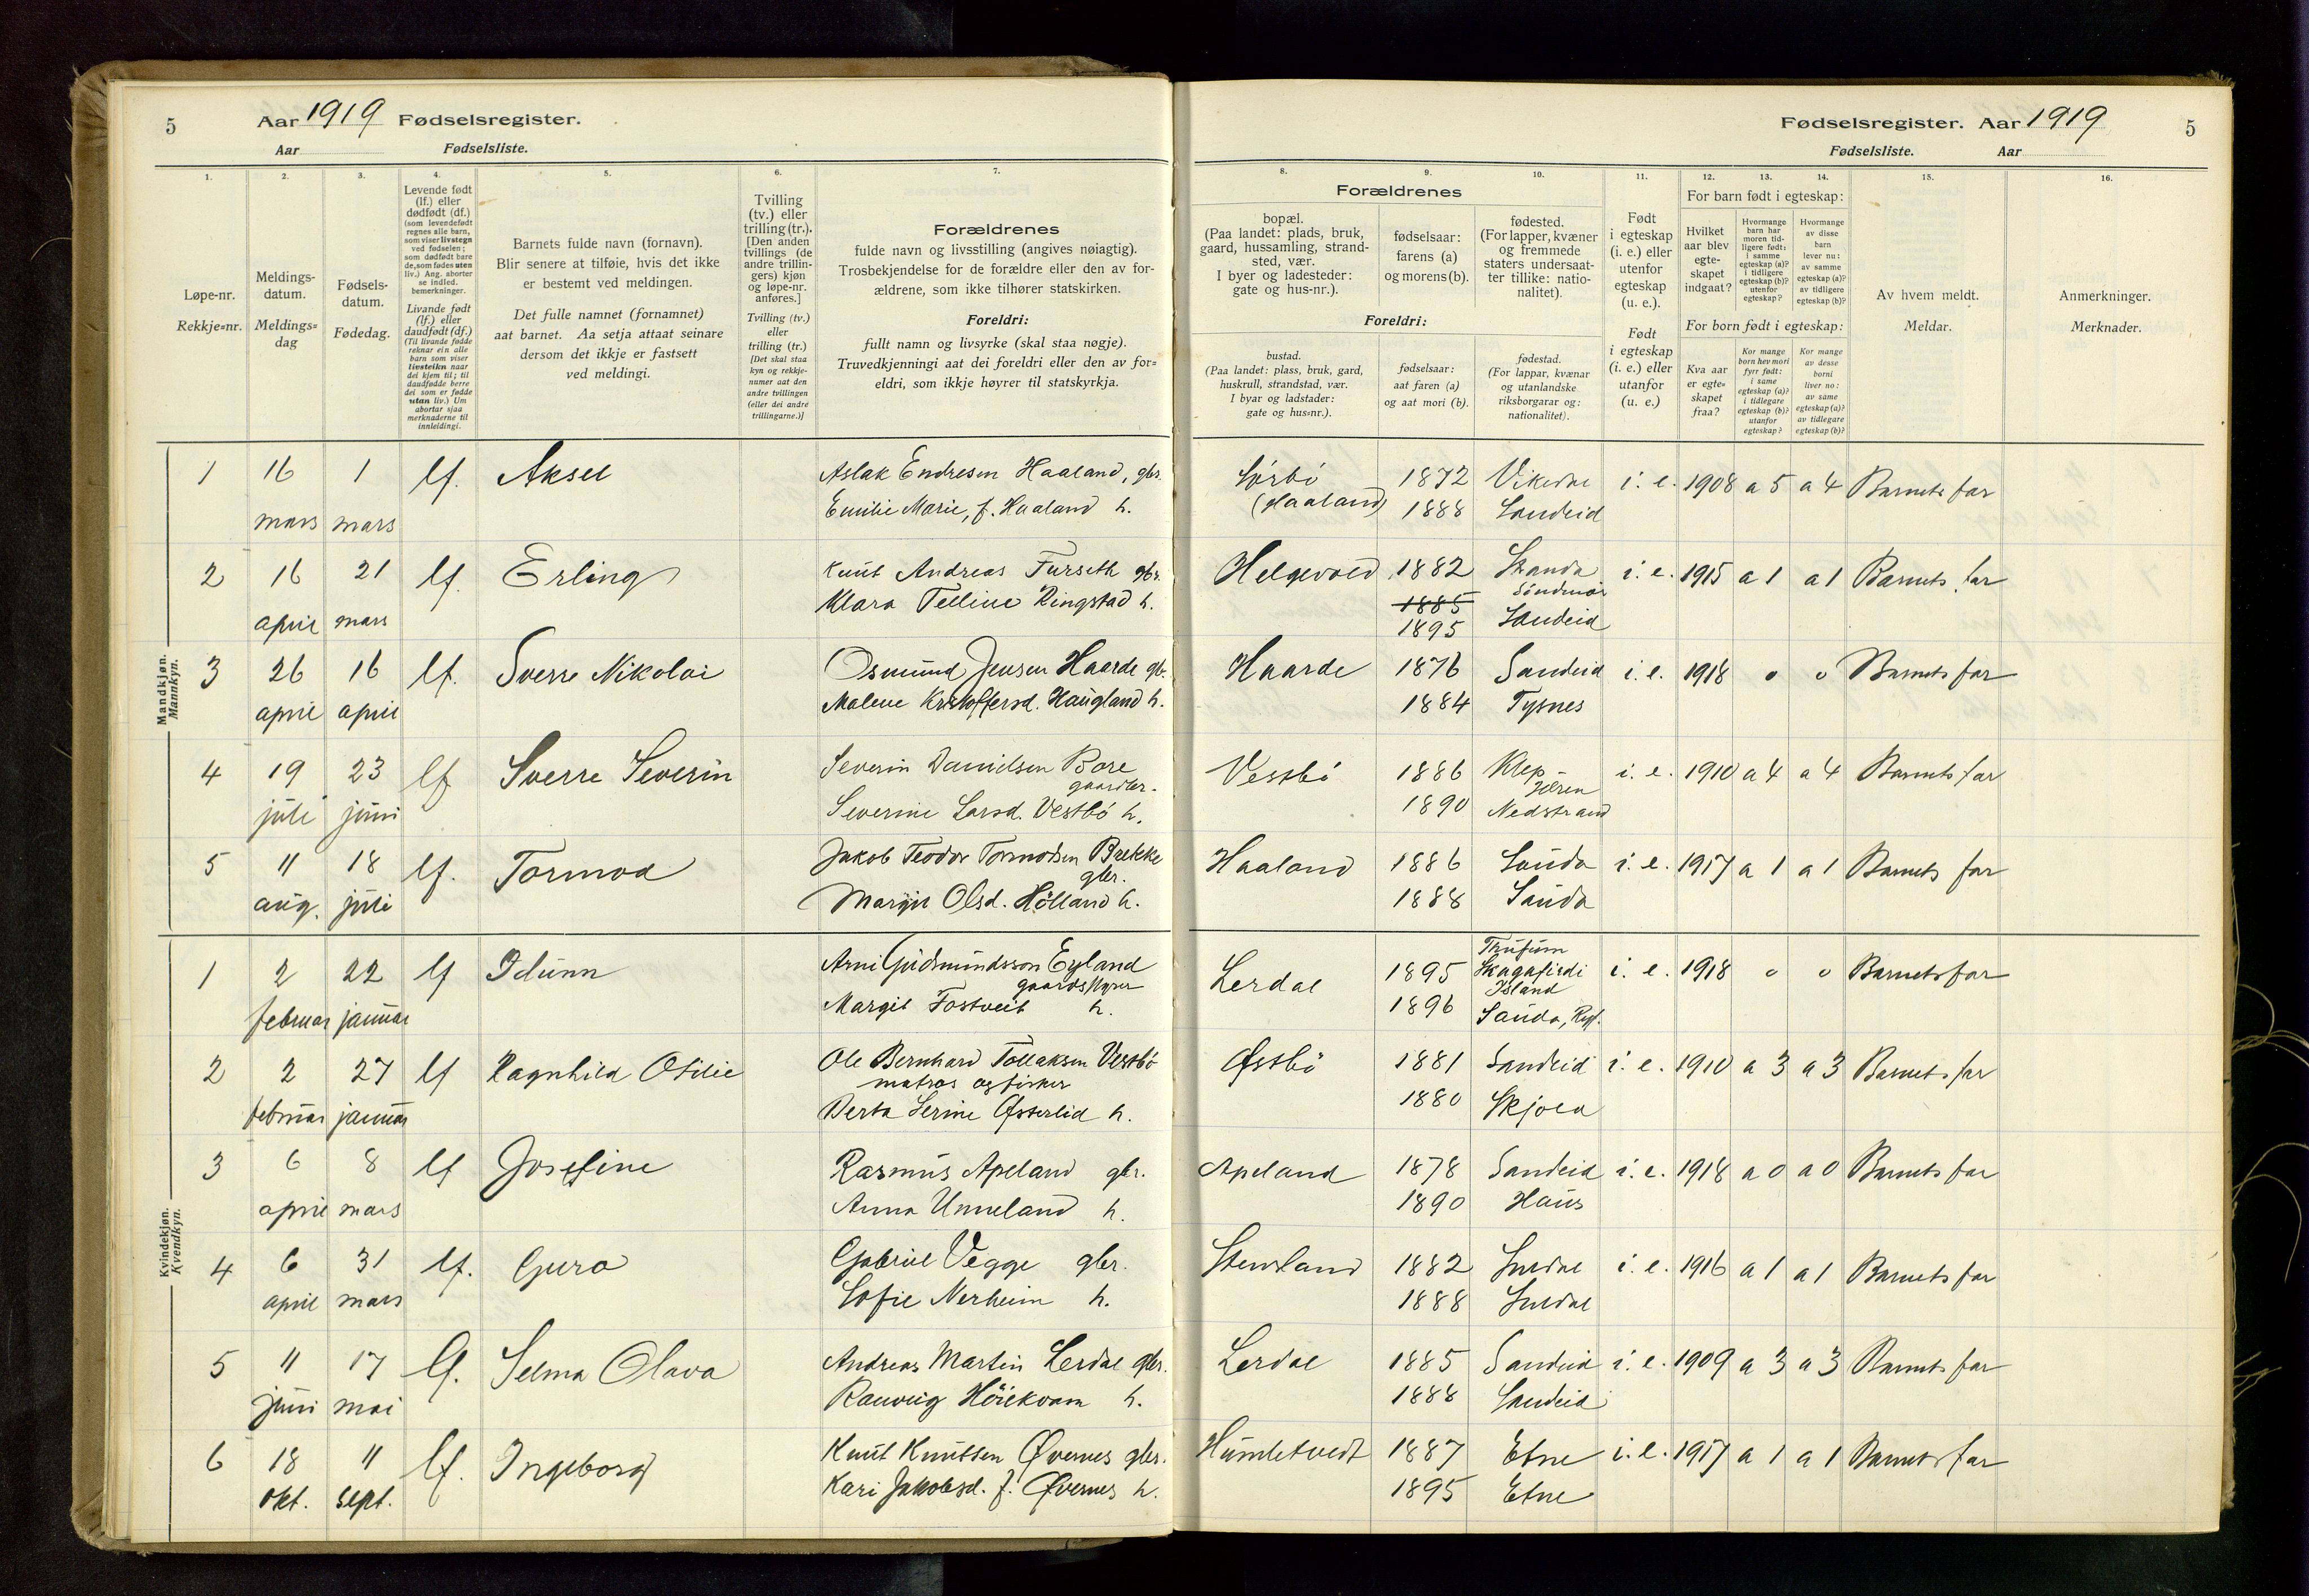 5 Aar 1919 Fødselsregister.
Aar Fødselsliste.
1. 2. 3. 4. 5. 6. 7.
Løpe-nr.
Rekkje=nr.
Meldings-
datum.
Meldings=
dag
Fødsels-
datum.
Fødedag.
Levende født
(lf.) eller
dødfødt (df.)
(som levendefødt
regnes alle barn,
som viser livstegn
ved fødselen;
som dødfødt bare
de, som fødes uten
liv.) Ang. aborter
se indled.
bemerkninger.
Livande født
(lf.) eller
daudfødt (df.)
(Til livande fødde
reknar ein alle
barn som viser
livsteikn naar
dei kjem til; til
daudfødde berre
dei som er fødde
utan liv.) Um
abortar sjaa
merknaderne til
innleidingi.
Barnets fulde navn (fornavn).
Blir senere at tilføie, hvis det ikke
er bestemt ved meldingen.
Det fulle namnet (fornamnet)
aat barnet. Aa setja attaat seinare
dersom det ikkje er fastsett
ved meldingi.
Tvilling
(tv.) eller
trilling (tr.).
[Den anden
tvillings (de
andre trillin-
gers) kjøn
og løpe-nr.
anføres.]
Tvilling (tv.)
eller
trilling (tr.)
[Det skal staa
kyn og rekkje-
numer aat den
andre tvillingen
(eller dei andre
trillingarne.)]
Forældrenes
fulde navn og livsstilling (angives nøiagtig).
Trosbekjendelse for de forældre eller den av for-
ældrene, som ikke tilhører statskirken.
Foreldri:
fullt namn og livsyrke (skal staa nøgje).
Truvedkjenningi aat dei foreldri eller den av for=
eldri, som ikkje høyrer til statskyrkja.
Mandkjøn.
Mannkyn.
1 16 1 lf. Aksel Aslak Endresen Haaland, gbr.
mars mars Emilie Marie, f. Haaland h.
2 16 21 lf. Erling Knut Andreas Furseth gbr.
april mars Klara Telline Ringstad h.
3 26 16 lf. Sverre Nikolai Osmund Jensen Haarde gb.
april april Malene Kristoffersd. Haugland h.
4 19 23 lf Sverre Severin Severin Danielsen Bore
gaardbr.
juli juni Severine Larsd. Vestbö h.
5 11 18 lf. Tormod Jakob Teodor Tormodsen Brekke
gbr.
aug. juli Margit Olsd. Hölland h.
Kvindekjøn.
Kvendkyn.
1 2 22 lf Idunn Arni Gudmundsson Eyland
februar januar Margit Fostveit h.
2 2 27 lf Ragnhild Otilie Ole Bernhard Tollaksen Vestbö
matros og fisker
februar januar Berta Serine Østerlid h.
3 6 8 lf Josefine Rasmus Apeland gbr.
april mars Anna Unneland h.
4 6 31 lf. Guro Gabriel Vegge gbr.
april mars Sofie Nerheim h.
5 11 17 lf. Selma Olava Andreas Martin Lerdal gbr.
juni mai Ranveig Höiekvam h.
6 18 11 lf. Ingeborg Knut Knutsen Øvernes gbr.
okt. sept. Kari Jakobsd. f. Øvernes h.
Fødselsregister. Aar 1919 5
Fødselsliste. Aar
8. 9. 10. 11. 12. 13. 14. 15. 16.
Forældrenes
bopæl.
(Paa landet: plads, bruk,
gaard, hussamling, strand-
sted, vær.
I byer og ladesteder:
gate og hus-nr.).
fødselsaar:
farens (a)
og morens (b).
fødested.
(For lapper, kvæner
og fremmede
staters undersaat-
ter tillike: natio-
nalitet).
Foreldri:
bustad.
(Paa landet: plass, bruk, gard,
huskrull, strandstad, vær.
I byar og ladstader:
gate og hus=nr.).
fødselsaar:
aat faren (a)
og aat mori (b).
fødestad.
(For lappar, kvænar
og utanlandske
riksborgarar og:
nationalitet).
Født
i egteskap
(i. e.) eller
utenfor
egteskap
(u. e.).
Født
i egteskap
(i. e.) eller
utanfor
(u. e.)
For barn født i egteskap:
Hvilket
aar blev
egte-
skapet
indgaat?
Hvormange
barn har
moren tid-
ligere født:
i samme
egteskap (a)?
i tidligere
egteskap (b)?
utenfor
egteskap?
Hvormange
av disse
barn
lever nu:
av samme
egteskap (a)?
av tidligere
egteskap (b)?
For born født i egteskap:
Kva aar
er egte=
skapet
fraa?
Kor mange
born hev mori
fyrr født:
i same
egteskap (a)?
i tidlegare
egteskap (b)?
utanfor
egteskap?
Kor mange
av desse
borni
liver no:
av same
egteskap (a)?
av tidlegare
egteskap (b)?
Av hvem meldt.
Meldar.
Anmerkninger.
Merknader.
Sörbö 1872 Vikedal i. e. 1908 a 5 a 4 Barnets far
(Haaland) 1888 Sandeid
Helgevold 1882 Skanda i. e. 1915 a 1 a 1 Barnets far
Söndmör
1885
1895 Sandeid
Haarde 1876 Sandeid i. e. 1918 0 0 Barnets far
1884 Tysnes
Vestbö 1886 Klep i. e. 1910 a 4 a 4 Barnets far
Jæren
1890 Nedstrand
Haaland 1886 Sauda i. e. 1917 a 1 a 1 Barnets far
1888 Sauda
Lerdal 1895 Skagafirdi i. e. 1918 0 0 Barnets far
Island
1896 Sauda, Ryf.
Østbö 1881 Sandeid i. e. 1910 a 3 a 3 Barnets far
1880 Skjold
Apeland 1878 Sandeid i. e. 1918 a 0 a 0 Barnets far
1890 Haus
Stensland 1882 Suldal i. e. 1916 a 1 a 1 Barnets far
1888 Suldal
Lerdal 1885 Sandeid i. e. 1909 a 3 a 3 Barnets far
1888 Sandeid
Humletvedt 1887 Etne i. e. 1917 a 1 a 1 Barnets far
1895 Etne